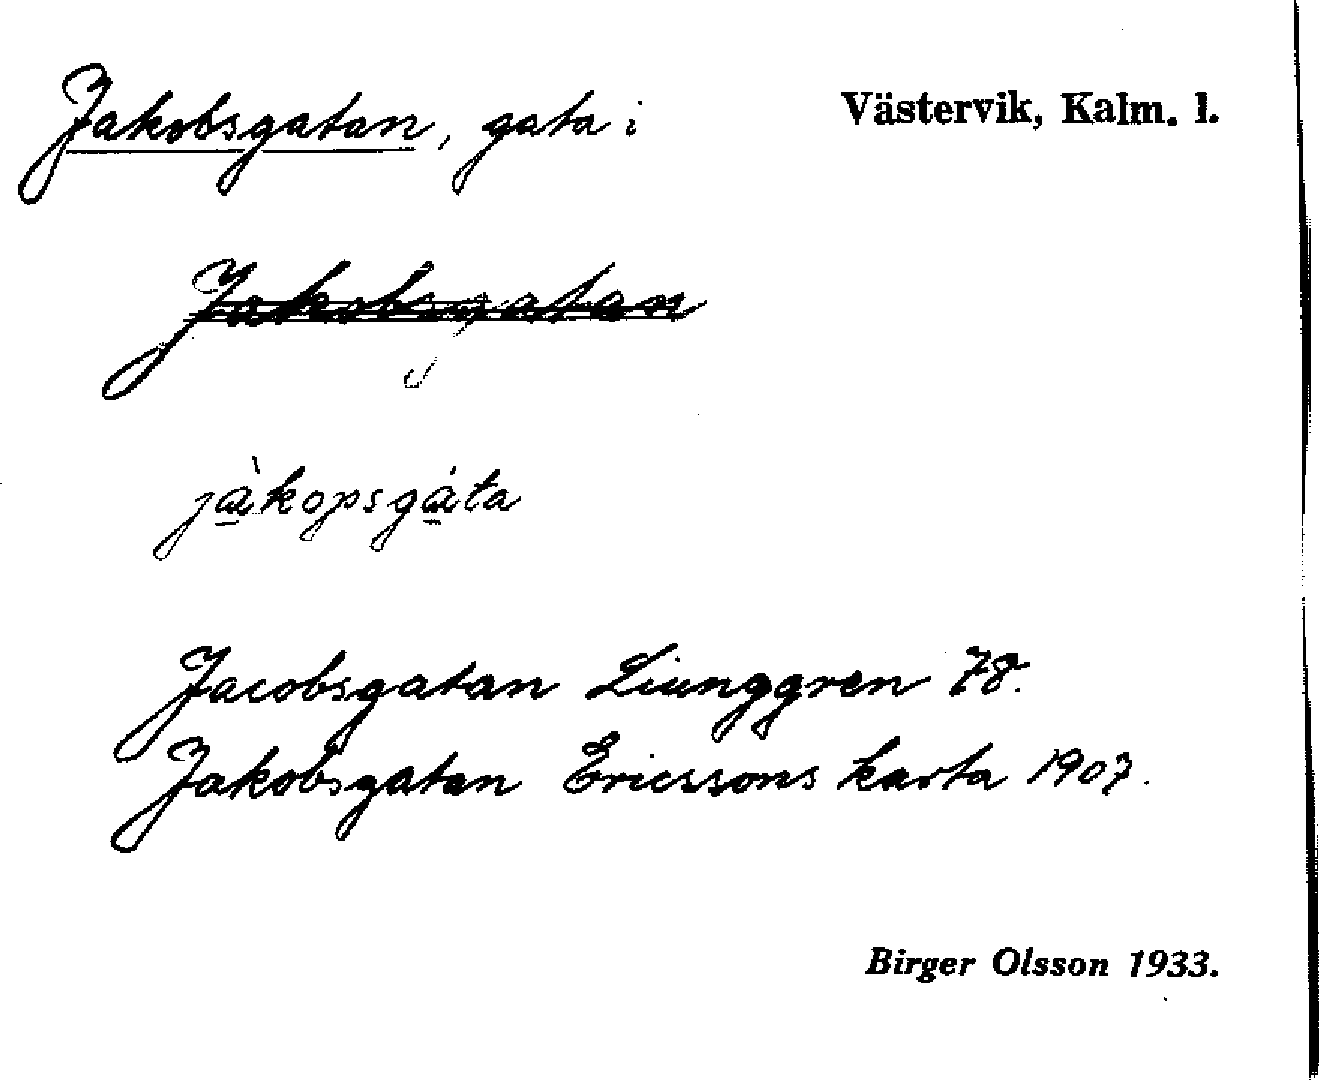 Jakobsgatan, gata i Västervik, Kalm. l.
Jakobsgatan
jàkopsgáta
Jacobsgatan Liunggren 78.
Jakobsgatan Ericssons karta 1907.
Birger Olsson 1933.